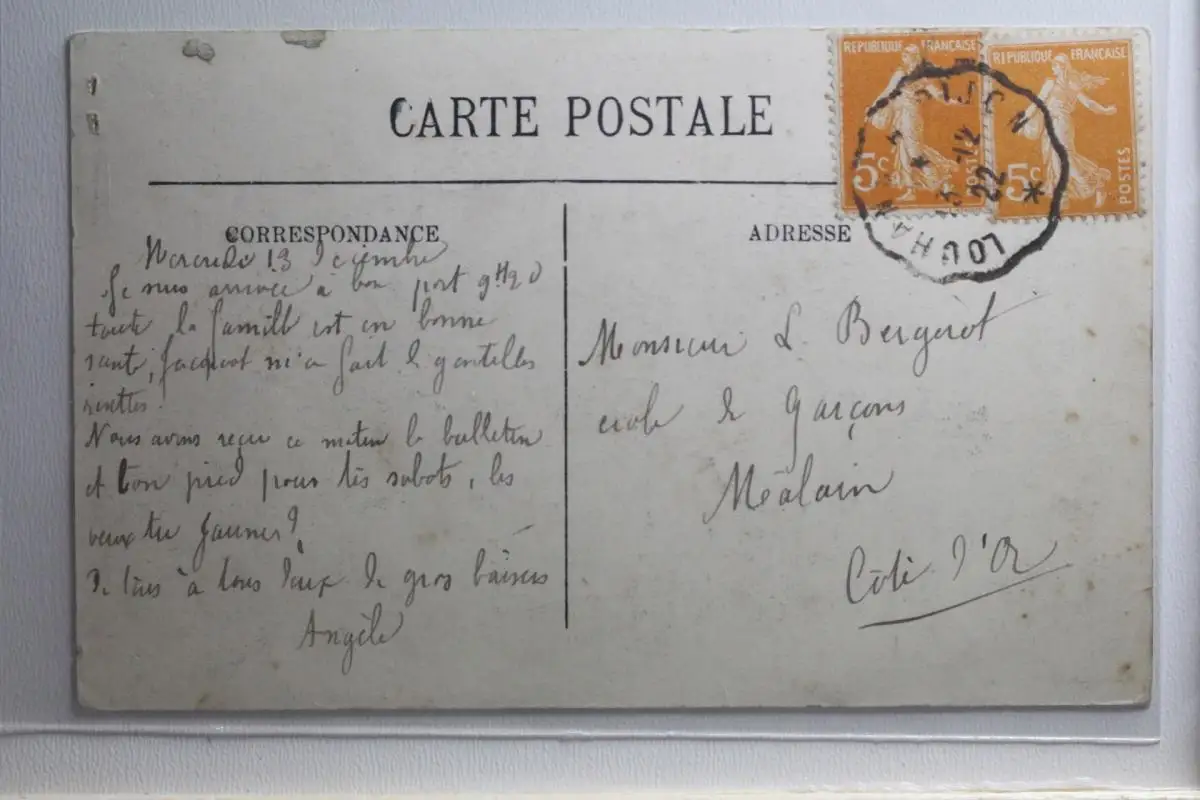 CARTE POSTALE
REPUBLIQUE FRANÇAISE
5c
POSTES
REPUBLIQUE FRANÇAISE
5c
POSTES
DIJON
13 12
22
LOUHAN
CORRESPONDANCE
Mercredi 13 Décembre
Je suis arrivée à bon port 9H20
toute la famille est en bonne
santé, Jacquot m'a fait de gentilles
risettes.
Nous avons reçu ce matin le bulletin
et ton pied pour tes sabots, les
veux tu jaunes?
De tous à tous deux de gros baisers
Angèle
ADRESSE
Monsieur L. Bergerot
école de Garçons
Mâlain
Côte d'Or